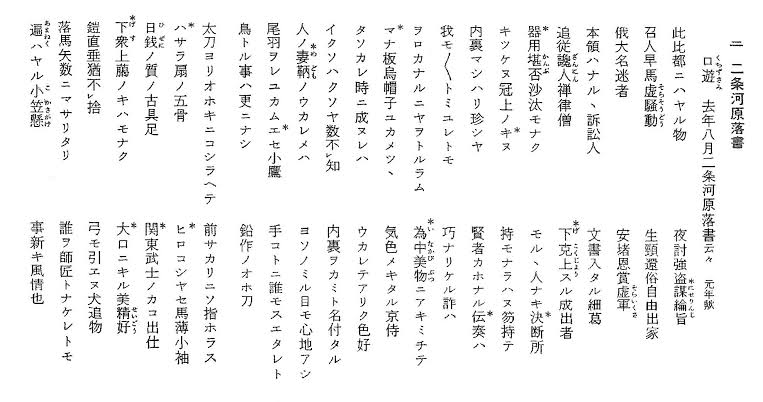 三 二条河原落書
口遊 去年八月二条河原落書云々 元年歟
此比都ニハヤル物 夜討強盗*謀綸旨
召人早馬虚騒動 生頸還俗自由出家
俄大名迷者 安堵恩賞虚軍
本領ハナルヽ訴訟人 文書入タル細葛
追従讒人禅律僧 *下克上スル成出者
*器用堪否沙汰モナク モルヽ人ナキ*決断所
キツケヌ冠上ノ*キヌ 持モナラハヌ笏持テ
内裏マシハリ珍シヤ 賢者カホナル*伝奏ハ
我モ〱トミユレトモ 巧ナリケル詐ハ
ヲロカナルニヤヲトルラム *為中美物ニアキミチテ
*マナ板烏帽子ユカメツヽ 気色メキタル京侍
タソカレ時ニ成ヌレハ ウカレテアリク色好
イクソハクソヤ数不レ知 内裏ヲカミト名付タル
人ノ*妻鞆ノウカレメハ ヨソノミル目モ心地アシ
尾羽ヲレユカム*エセ小鷹 手コトニ誰モスエタレト
鳥トル事ハ更ニナシ 鉛作ノオホ刀
太刀ヨリオホキニコシラヘテ 前サカリニソ指ホラス
*ハサラ扇ノ五骨 *ヒロコシヤセ馬薄小袖
日銭ノ質ノ古具足 *関東武士ノカコ出仕
*下衆上臈ノキハモナク *大口ニキル美精好
鎧直垂猶不レ捨 弓モ引エヌ犬追物
落馬矢数ニマサリタリ 誰ヲ師匠トナケレトモ
遍ハヤル小笠懸 事新キ風情也